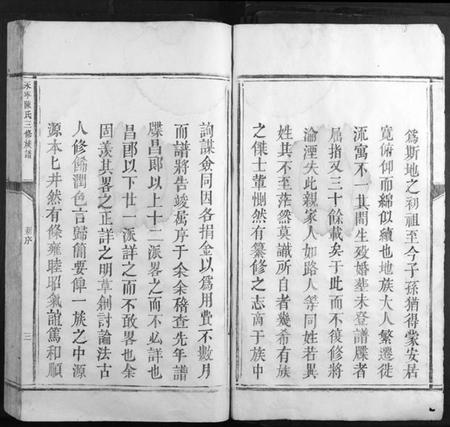 爲斯地之初祖至今子孫猶得蒙安居
寬俯仰而綿似續也地族大人繁遷徙
流寓不一其間生歿婚葬未登譜牒者
屈指又三十餘載矣于此而不復修將
淪湮失此親家人如路人等同姓若異
姓其不至茫然莫識所自者幾希有族
之傑士輩惻然有纂修之志商于族中
詢謀僉同因各捐金以爲用費不數月
而譜將告竣屬序于余余稽查先年譜
牒昌郎以上十二派畧之而不必詳也
昌郎以下廿一派詳之而不敢畧也余
因羨其畧之正詳之明草創討論法古
人修飾潤色言歸簡要俾一族之中源
源本七井然有條雍睦昭氣誼篤和順
陳氏三修族譜
新序
三